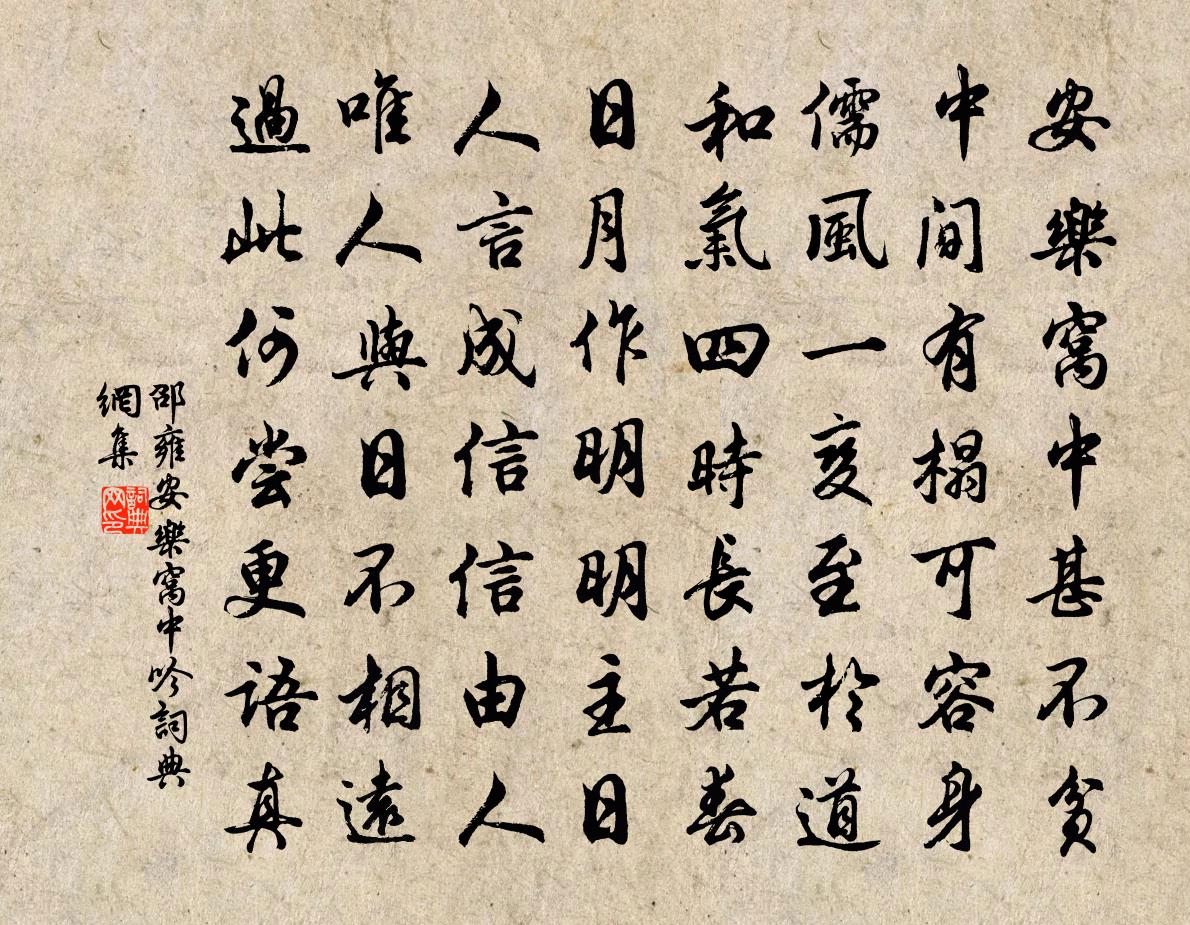 安樂窩中甚不貧
中間有榻可容身
儒風一變至於道
和氣四時長若春
日月作明明主日
人言成信信由人
唯人與日不相遠
過此何嘗更語真
邵雍安樂窩中吟詞典
網集
詞典
网印